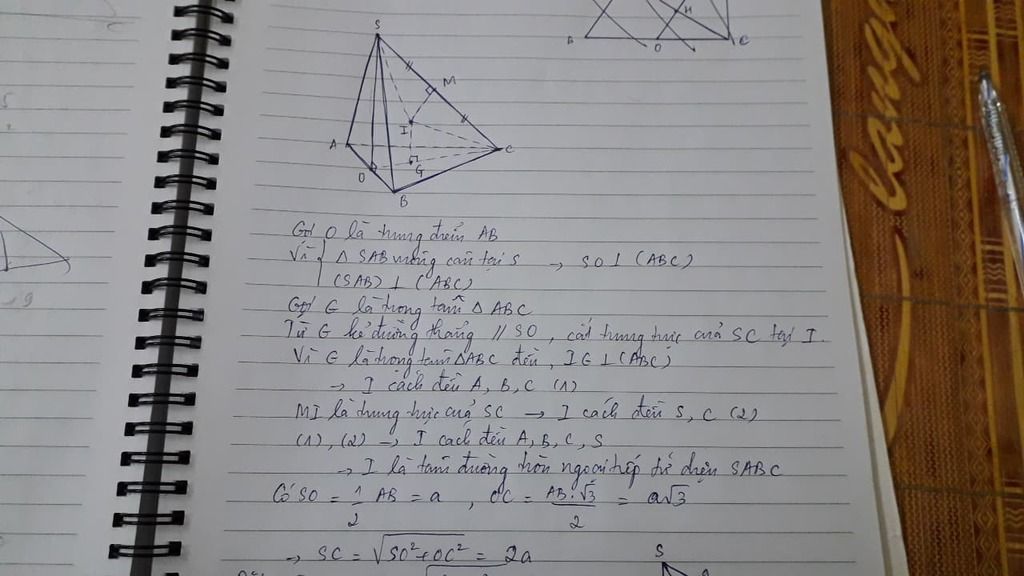 S
M
I
A
C
O
G
B
H
O
C
Gọi O là trung điểm AB
Vì { Δ SAB vuông cân tại S → SO ⊥ (ABC)
(SAB) ⊥ (ABC)
Gọi G là trọng tâm Δ ABC
Từ G kẻ đường thẳng // SO, cắt trung trực của SC tại I.
Vì G là trọng tâm ΔABC đều, IG ⊥ (ABC)
→ I cách đều A, B, C (1)
MI là trung trực của SC → I cách đều S, C (2)
(1), (2) → I cách đều A, B, C, S
→ I là tâm đường tròn ngoại tiếp tứ diện SABC
Có SO = 1/2 AB = a, OC = AB.√3/2 = a√3
→ SC = √(SO²+OC²) = 2a
S